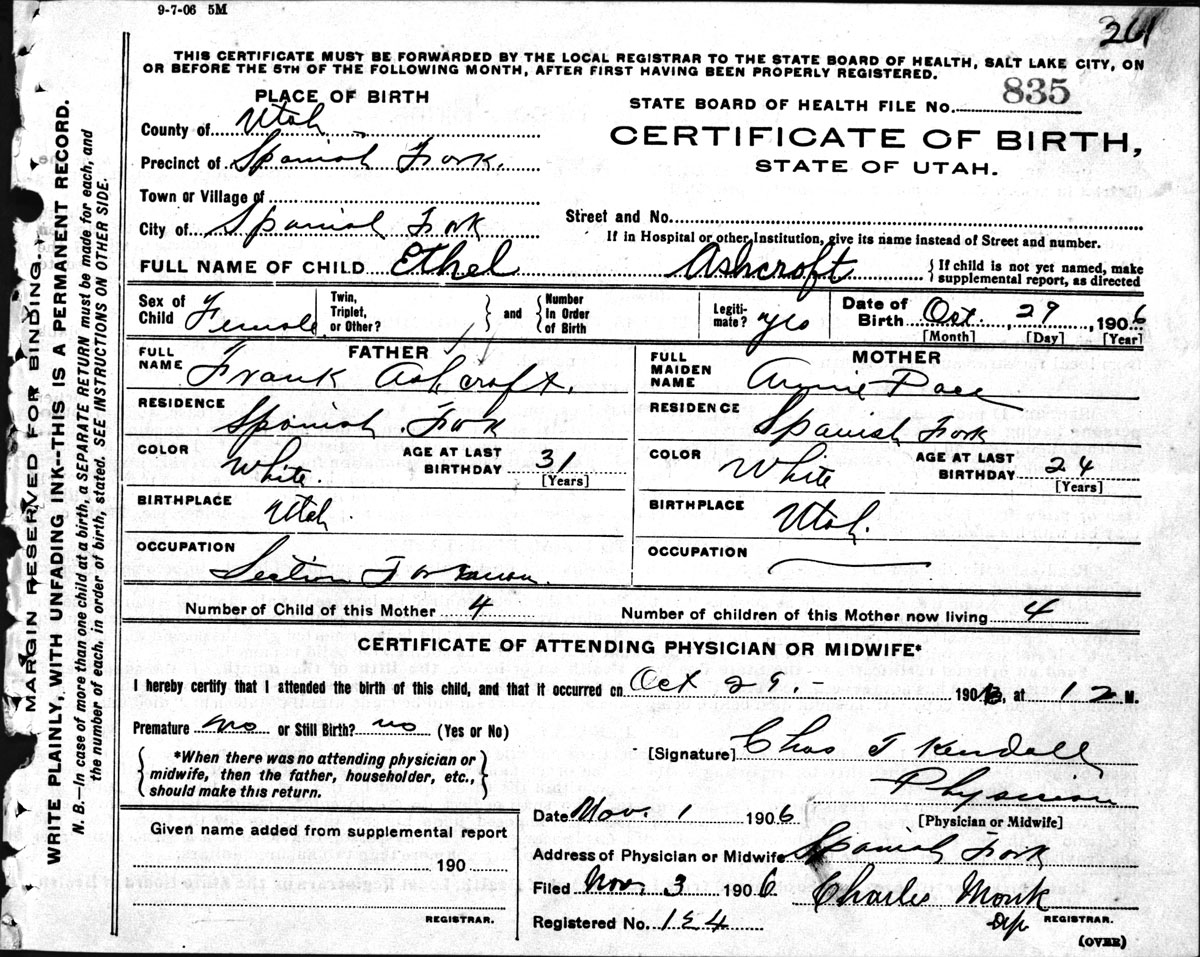 9-7-06 5M
261
THIS CERTIFICATE MUST BE FORWARDED BY THE LOCAL REGISTRAR TO THE STATE BOARD OF HEALTH, SALT LAKE CITY, ON
OR BEFORE THE 5TH OF THE FOLLOWING MONTH, AFTER FIRST HAVING BEEN PROPERLY REGISTERED.
PLACE OF BIRTH
STATE BOARD OF HEALTH FILE NO. 835
County of Utah
CERTIFICATE OF BIRTH,
Precinct of Spanish Fork.
STATE OF UTAH.
Town or Village of
Street and No.
City of Spanish Fork
If in Hospital or other Institution, give its name instead of Street and number.
FULL NAME OF CHILD Ethel Ashcroft
{ If child is not yet named, make
supplemental report, as directed
Sex of
Child Female
Twin,
Triplet,
or Other?
} and {
Number
In Order
of Birth
Legiti-
mate? yes
Date of
Birth Oct. , 29 , 1906
[Month] [Day] [Year]
FATHER
FULL
NAME Frank Ashcroft.
RESIDENCE
Spanish Fork
COLOR White.
AGE AT LAST
BIRTHDAY 31
[Years]
BIRTHPLACE
Utah.
OCCUPATION
Section Foreman.
MOTHER
FULL
MAIDEN
NAME Annie Pace
RESIDENCE
Spanish Fork
COLOR White
AGE AT LAST
BIRTHDAY 24
[Years]
BIRTHPLACE
Utah.
OCCUPATION
Number of Child of this Mother 4 Number of children of this Mother now living 4
CERTIFICATE OF ATTENDING PHYSICIAN OR MIDWIFE*
I hereby certify that I attended the birth of this child, and that it occurred on Oct 29. - 1906, at 12 M.
Premature no or Still Birth? no (Yes or No)
[Signature] Chas T Kendall
Physician
[Physician or Midwife]
{ *When there was no attending physician or
midwife, then the father, householder, etc.,
should make this return. }
Date Nov. 1 1906
Given name added from supplemental report
190
REGISTRAR.
Address of Physician or Midwife Spanish Fork
Filed Nov. 3 1906 Charles Monk
Registered No. 154 Dep REGISTRAR.
(OVER)
MARGIN RESERVED FOR BINDING.
WRITE PLAINLY, WITH UNFADING INK--THIS IS A PERMANENT RECORD.
N. B.—In case of more than one child at a birth, a SEPARATE RETURN must be made for each, and
the number of each, in order of birth, stated. SEE INSTRUCTIONS ON OTHER SIDE.